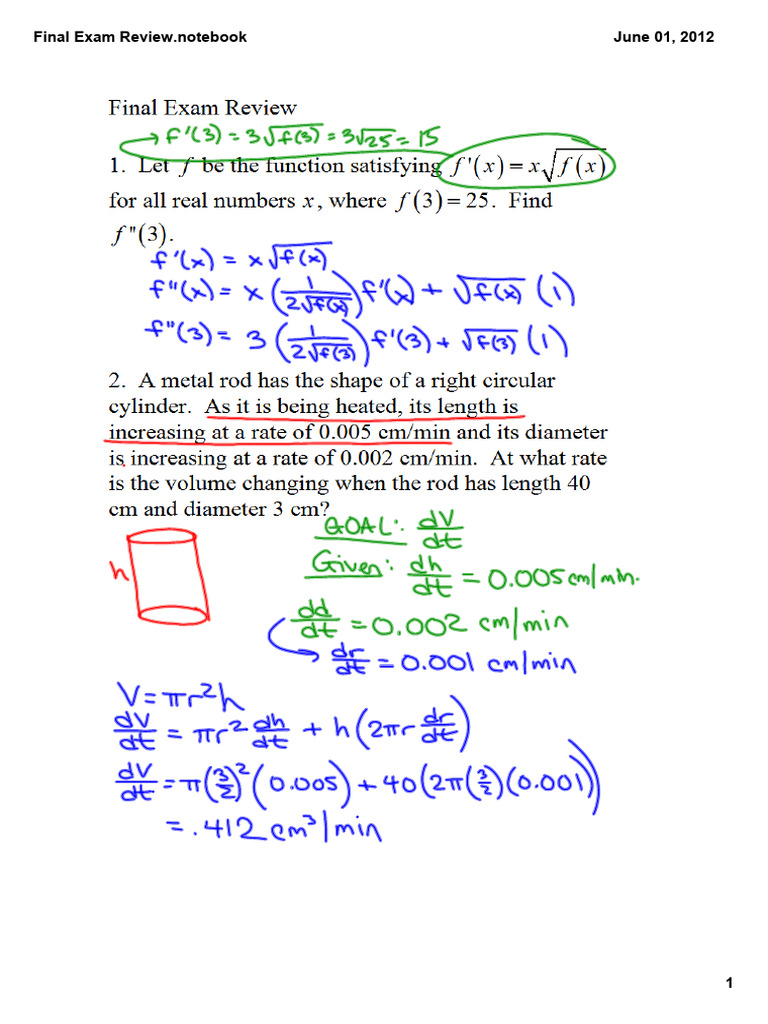 Final Exam Review.notebook June 01, 2012
Final Exam Review
f'(3) = 3√f(3) = 3√25 = 15
1. Let f be the function satisfying f'(x) = x√f(x)
for all real numbers x, where f(3) = 25. Find
f"(3).
f'(x) = x√f(x)
f"(x) = x(1/2√f(x))f'(x) + √f(x) (1)
f"(3) = 3(1/2√f(3))f'(3) + √f(3) (1)
2. A metal rod has the shape of a right circular
cylinder. As it is being heated, its length is
increasing at a rate of 0.005 cm/min and its diameter
is increasing at a rate of 0.002 cm/min. At what rate
is the volume changing when the rod has length 40
cm and diameter 3 cm?
GOAL: dV/dt
h
Given: dh/dt = 0.005 cm/min.
dd/dt = 0.002 cm/min
dr/dt = 0.001 cm/min
V = πr²h
dV/dt = πr² dh/dt + h(2πr dr/dt)
dV/dt = π(3/2)²(0.005) + 40(2π(3/2)(0.001))
= .412 cm³/min
1